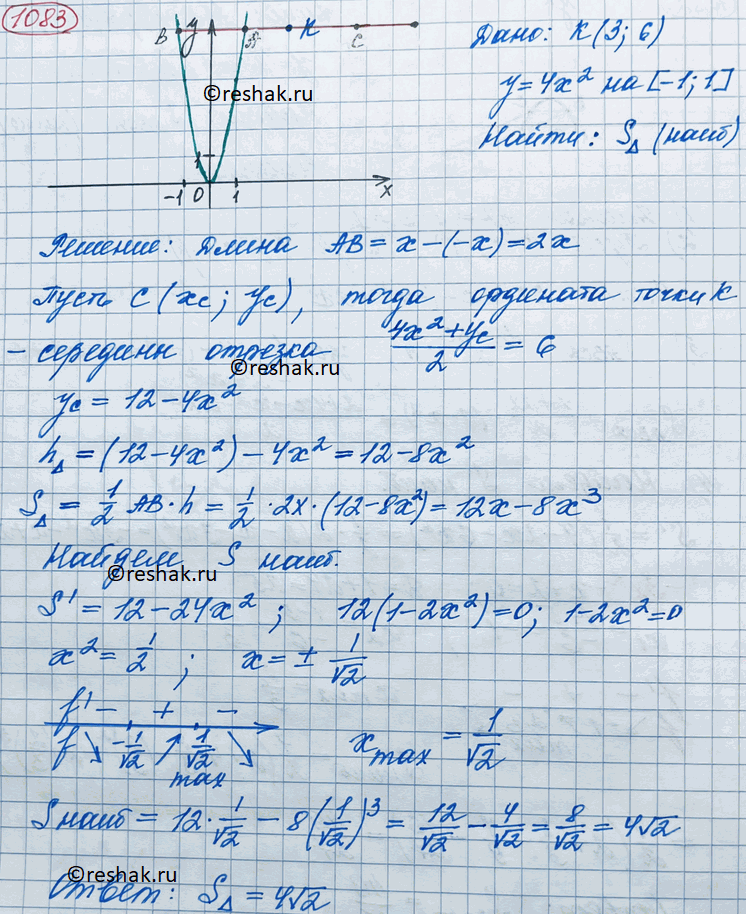 1083
B y A K C
©reshak.ru
1
-1 0 1 x
Дано: K(3; 6)
y=4x² на [-1; 1]
Найти: S△ (наиб)
Решение: Длина AB = x-(-x)=2x
Пусть C (xc; yc), тогда ордината точки K
- середины отрезка (4x²+yc)/2 = 6
©reshak.ru
yc = 12-4x²
h△ = (12-4x²)-4x² = 12-8x²
S△ = 1/2 AB·h = 1/2·2x·(12-8x²)=12x-8x³
Найдем S наиб.
©reshak.ru
S' = 12-24x² ; 12(1-2x²)=0; 1-2x²=0
x² = 1/2 ; x = ± 1/√2
f' - + -
f ↘ -1/√2 ↗ 1/√2 ↘
max
xmax = 1/√2
Sнаиб = 12·1/√2 - 8(1/√2)³ = 12/√2 - 4/√2 = 8/√2 = 4√2
©reshak.ru
Ответ: S△ = 4√2